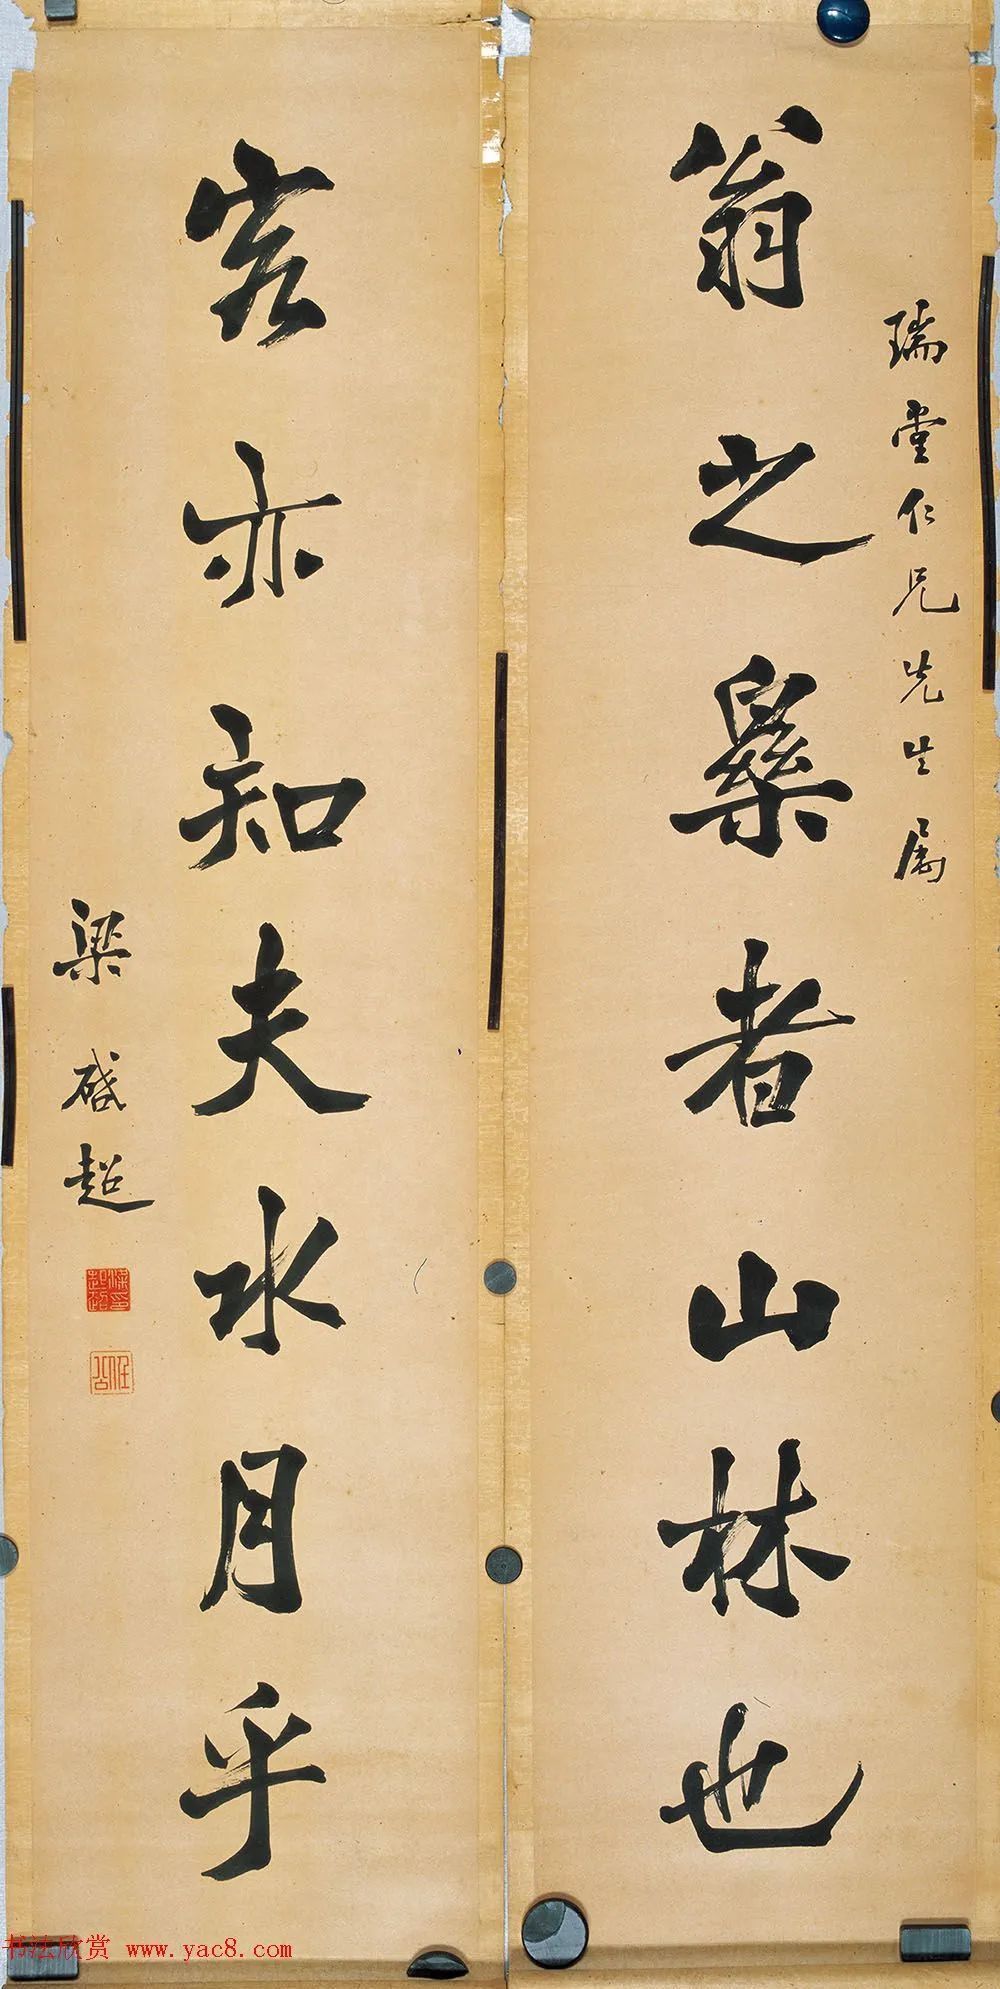 瑞堂仁兄先生属
翁之乐者山林也
客亦知夫水月乎
梁启超
书法欣赏 www.yac8.com